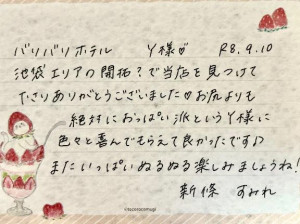 バリバリホテル Y様♡ R8.9.10
池袋エリアの開拓?で当店を見つけて
下さりありがとうございました♡お尻よりも
絶対におっぱい派というY様に
色々と喜んでもらえて良かったです♪
またいっぱいぬるぬる楽しみましょうね!
新條 すみれ